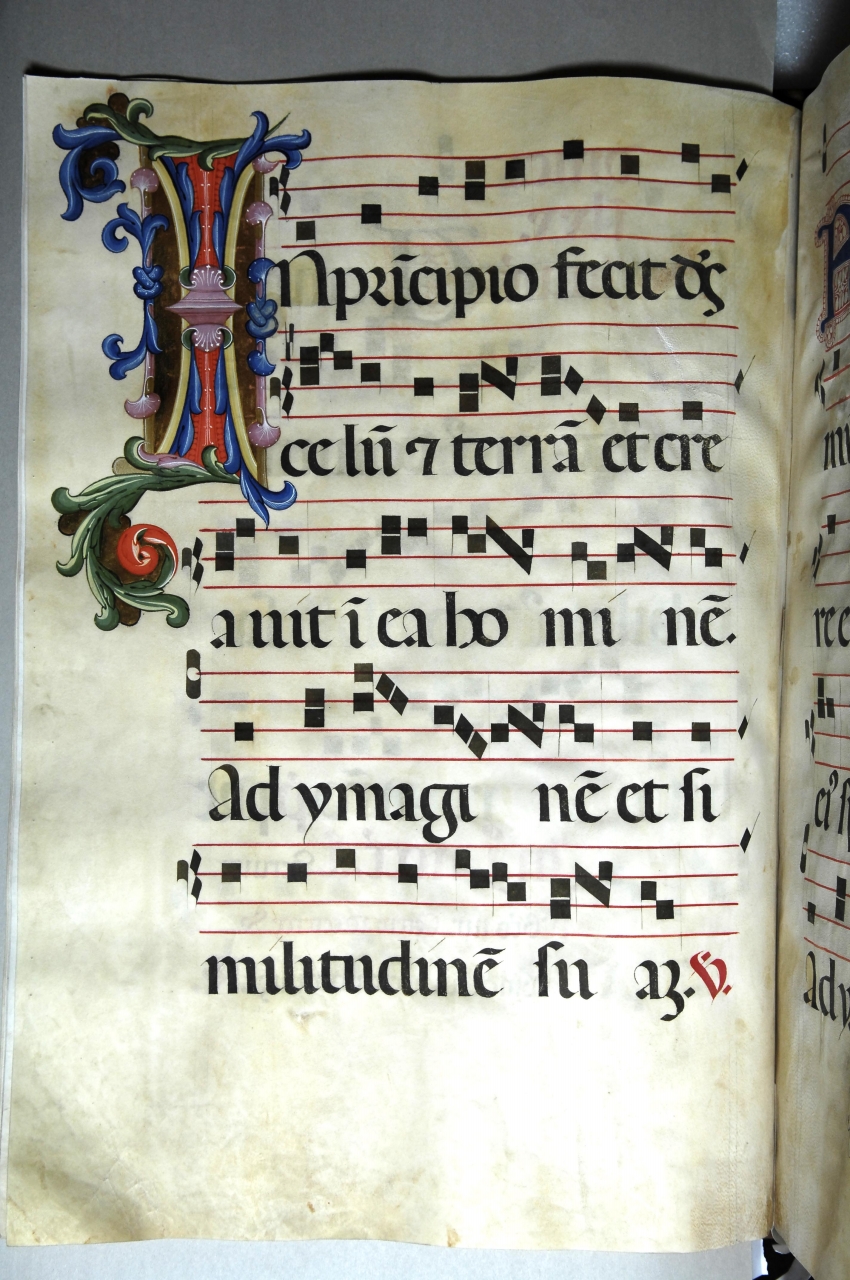 IN pricipio fecit ds̄
celū ⁊ terrā et cre
auit ī ea ho mi nē.
Ad ymagi nē et si
militudinē su aꝫ. ℣.